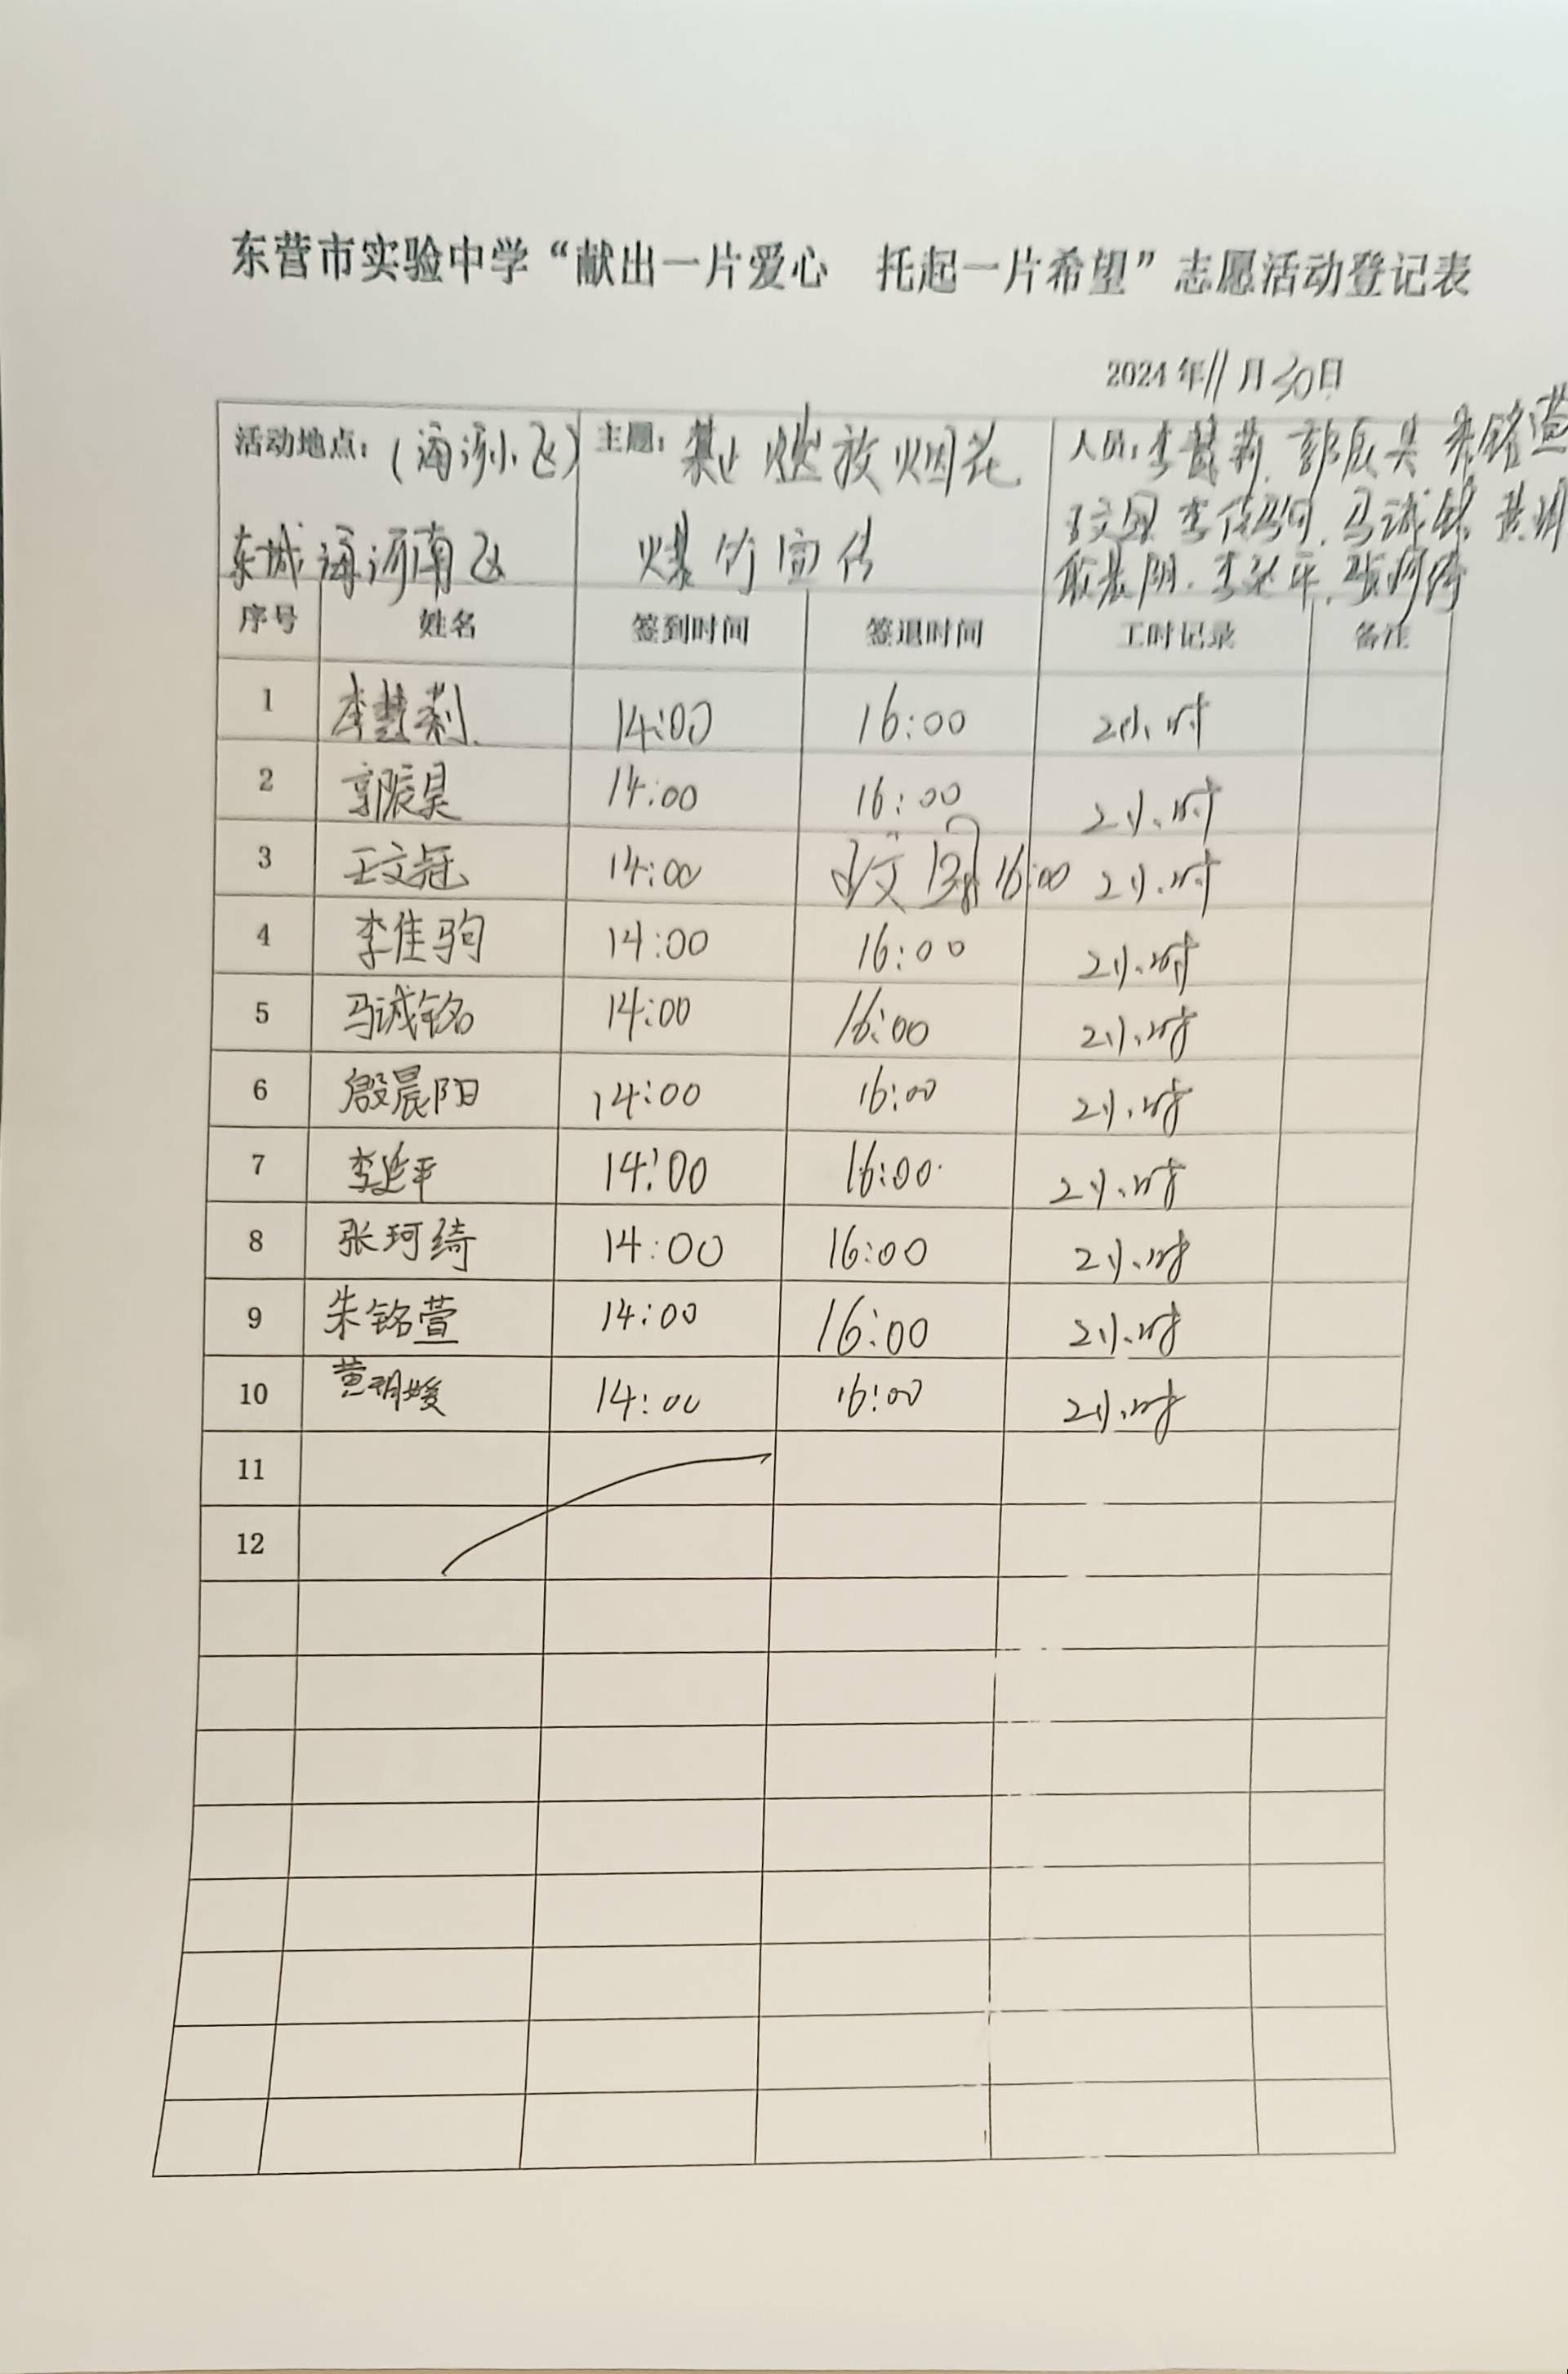 东营市实验中学“献出一片爱心 托起一片希望”志愿活动登记表
2024年11月30日
活动地点：（海河小区） 主题：禁止燃放烟花 人员：李慧莉 郭辰昊 朱铭萱
东城海河南区 爆竹宣传 李佳驹 马诚铭
殷晨阳 李延平 张珂绮
序号 姓名 签到时间 签退时间 工时记录 备注
1 李慧莉 14:00 16:00 2小时
2 郭辰昊 14:00 16:00 2小时
3 王文冠 14:00 16:00 2小时
4 李佳驹 14:00 16:00 2小时
5 马诚铭 14:00 16:00 2小时
6 殷晨阳 14:00 16:00 2小时
7 李延平 14:00 16:00 2小时
8 张珂绮 14:00 16:00 2小时
9 朱铭萱 14:00 16:00 2小时
10 黄玥媛 14:00 16:00 2小时
11
12